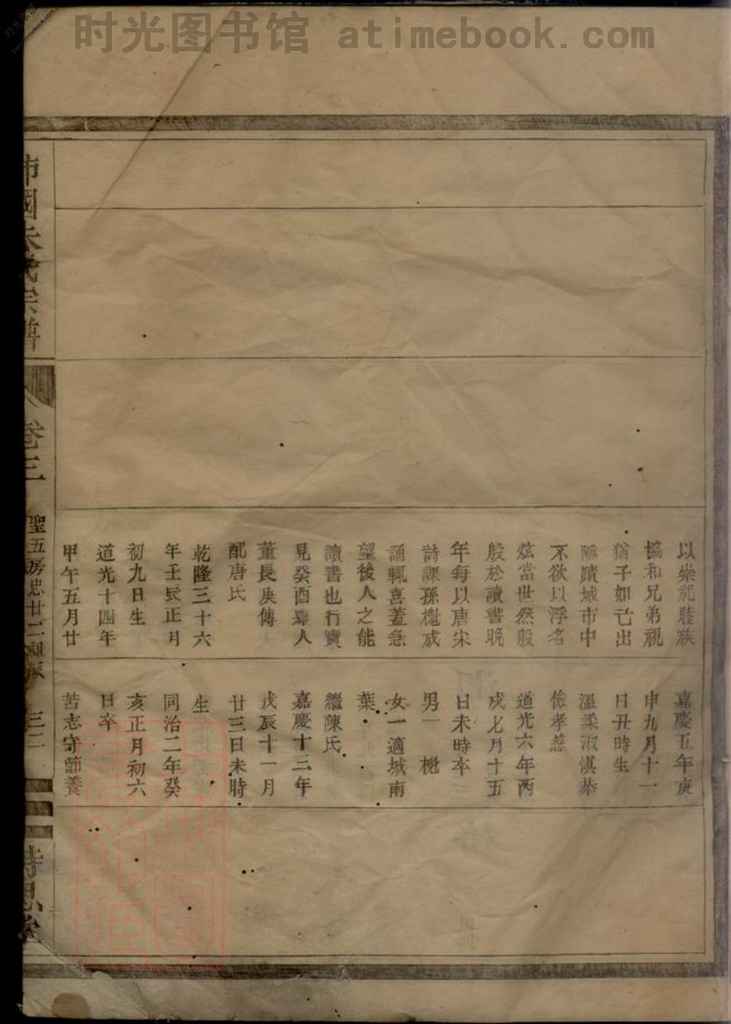 时光图书馆 atimebook.com
以崇祀睦族
協和兄弟視
猶子如己出
隱蹟城市中
不欲以浮名
炫當世然殷
殷於讀書晚
年每以唐宋
詩課孫櫆成
誦輒喜蓋急
望後人之能
讀書也行實
見癸酉舉人
董長庚傳
配唐氏
乾隆三十六
年壬辰正月
初九日生
道光十四年
甲午五月廿
嘉慶五年庚
申九月十一
日丑時生
溫柔淑慎恭
儉孝慈
道光六年丙
戌七月十五
日未時卒
男一
女一適城南
葉
繼陳氏
嘉慶十三年
戊辰十一月
廿三日未時
生
同治二年癸
亥正月初六
日卒
苦志守節養
沛國朱氏宗譜
卷三
聖五房忠廿二
三二